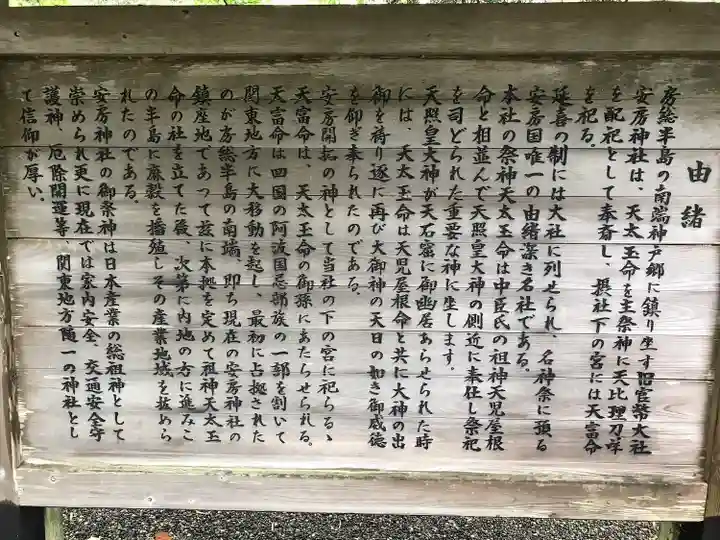 由緒
房総半島の南端神戸郷に鎮り坐す旧官幣大社
安房神社は、天太玉命を主祭神に天比理刀咩命
を配祀として奉斎し、摂社下の宮には天富命
を祀る。
延喜の制には大社に列せられ、名神祭に預る
安房国唯一の由緒深き名社である。
本社の祭神天太玉命は中臣氏の祖神天児屋根
命と相並んで天照皇大神の側近に奉仕し祭祀
を司どられた重要な神に坐します。
天照皇大神が天石窟に御幽居あらせられた時
には、天太玉命は天児屋根命と共に大神の出
御を祷り遂に再び大御神の天日の如き御威徳
を仰ぎ奉られたのである。
安房開拓の神として当社の下の宮に祀らるゝ
天富命は、天太玉命の御孫にあたらせられる。
天富命は四国の阿波国忌部族の一部を割いて
関東地方に大移動を起し、最初に占拠された
のが房総半島の南端、即ち現在の安房神社の
鎮座地であって茲に本拠を定めて祖神天太玉
命の社を立てた後、次第に内地の方に進みこ
の半島に麻穀を播殖しその産業地域を拡めら
れたのである。
安房神社の御祭神は日本産業の総祖神として
崇められ更に現在では家内安全、交通安全守
護神、厄除開運等、関東地方随一の神社とし
て信仰が厚い。